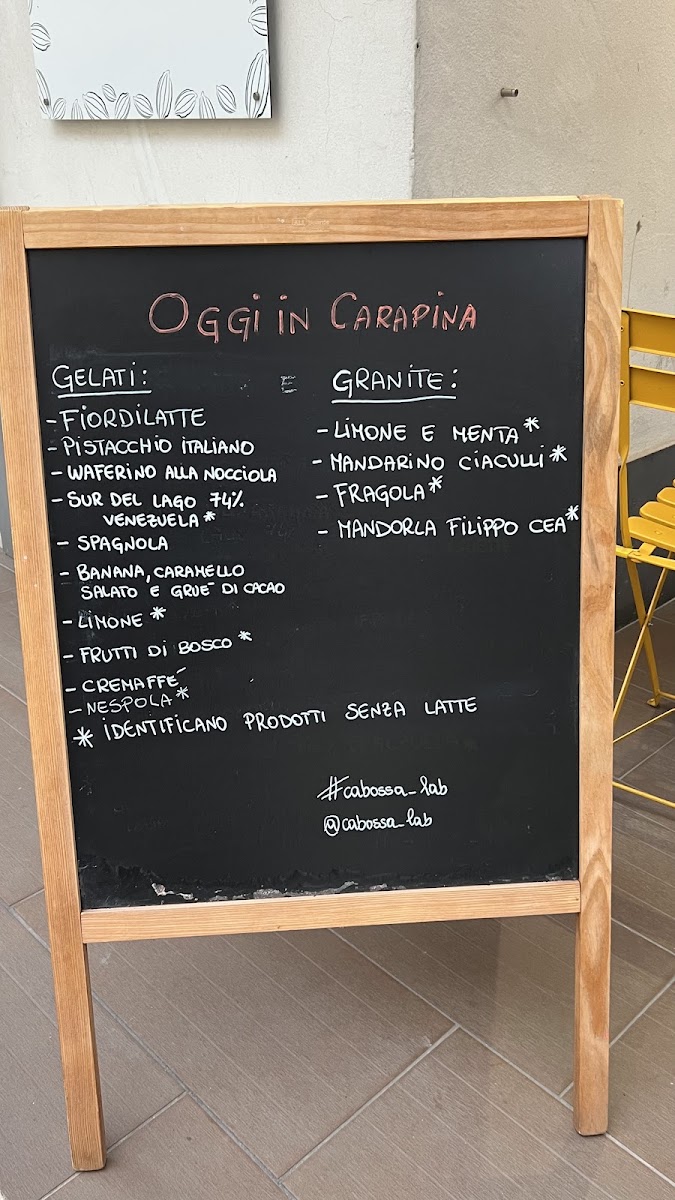 OGGI IN CARAPINA
GELATI:
- FIORDILATTE
- PISTACCHIO ITALIANO
- WAFERINO ALLA NOCCIOLA
- SUR DEL LAGO 74%
VENEZUELA *
- SPAGNOLA
- BANANA, CARAMELLO
SALATO E GRUÈ DI CACAO
- LIMONE *
- FRUTTI DI BOSCO *
- CREMAFFÈ
- NESPOLA *
GRANITE:
- LIMONE E MENTA *
- MANDARINO CIACULLI *
- FRAGOLA *
- MANDORLA FILIPPO CEA *
* IDENTIFICANO PRODOTTI SENZA LATTE
#cabossa_lab
@cabossa_lab